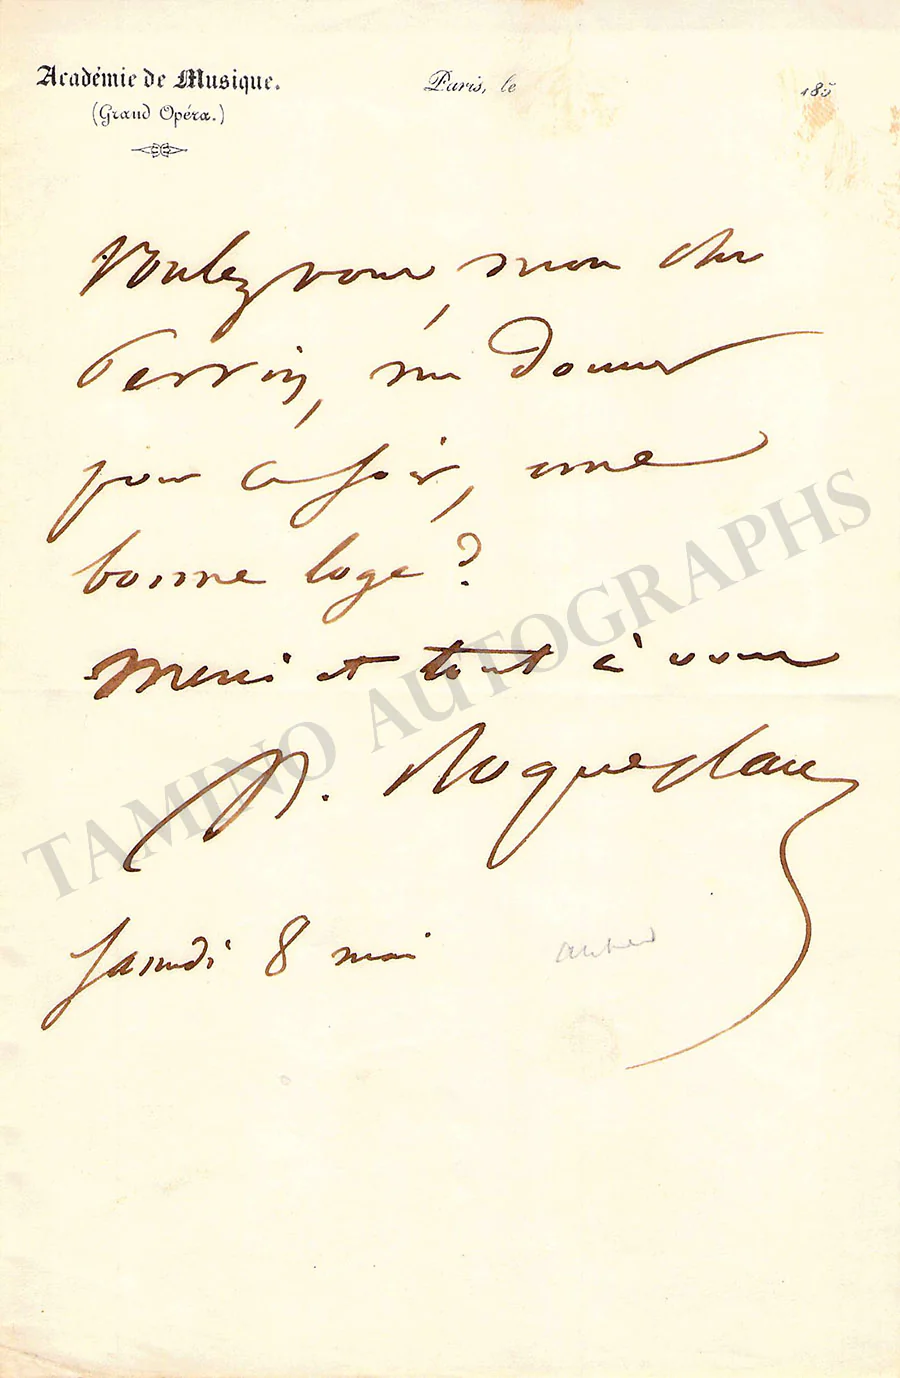 Académie de Musique.
(Grand Opéra.)
Paris, le 185
Voulez vous, mon cher
Perrin, me donner
pour ce soir, une
bonne loge?
Merci et tout à vous
N. Roqueplan
Samedi 8 mai
TAMINO AUTOGRAPHS